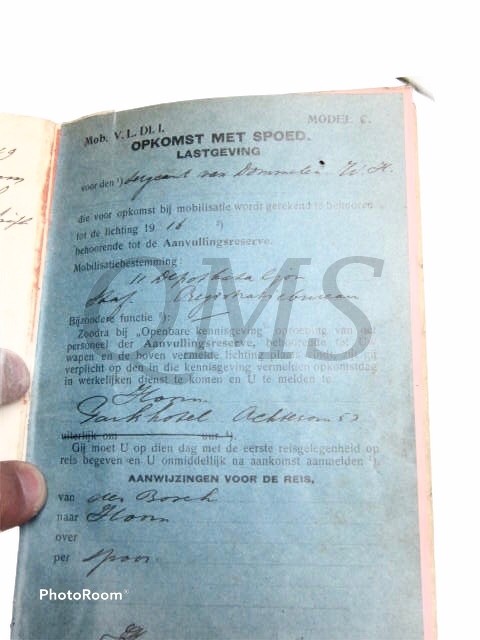 MODEL C.
Mob. V. L. Dl. I.
OPKOMST MET SPOED.
LASTGEVING
voor den ¹) Sergeant van Dommelen W. H.
die voor opkomst bij mobilisatie wordt gerekend te behooren
tot de lichting 1916 ²)
behoorende tot de Aanvullingsreserve.
Mobilisatiebestemming:
11 Depotbataljon
Staf Registratiebureau
Bijzondere functie ³)
Zoodra bij „Openbare kennisgeving" oproeping van het
personeel der Aanvullingsreserve, behoorende tot
wapen en de boven vermelde lichting plaats
verplicht op den in die kennisgeving vermelden opkomstdag
in werkelijken dienst te komen en U te melden te
Hoorn
Parkhotel Achterom 53
uiterlijk om uur ⁴).
Gij moet U op dien dag met de eerste reisgelegenheid op
reis begeven en U onmiddellijk na aankomst aanmelden ⁴).
AANWIJZINGEN VOOR DE REIS,
van den Bosch
naar Hoorn
over
per spoor.
OMS
PhotoRoom